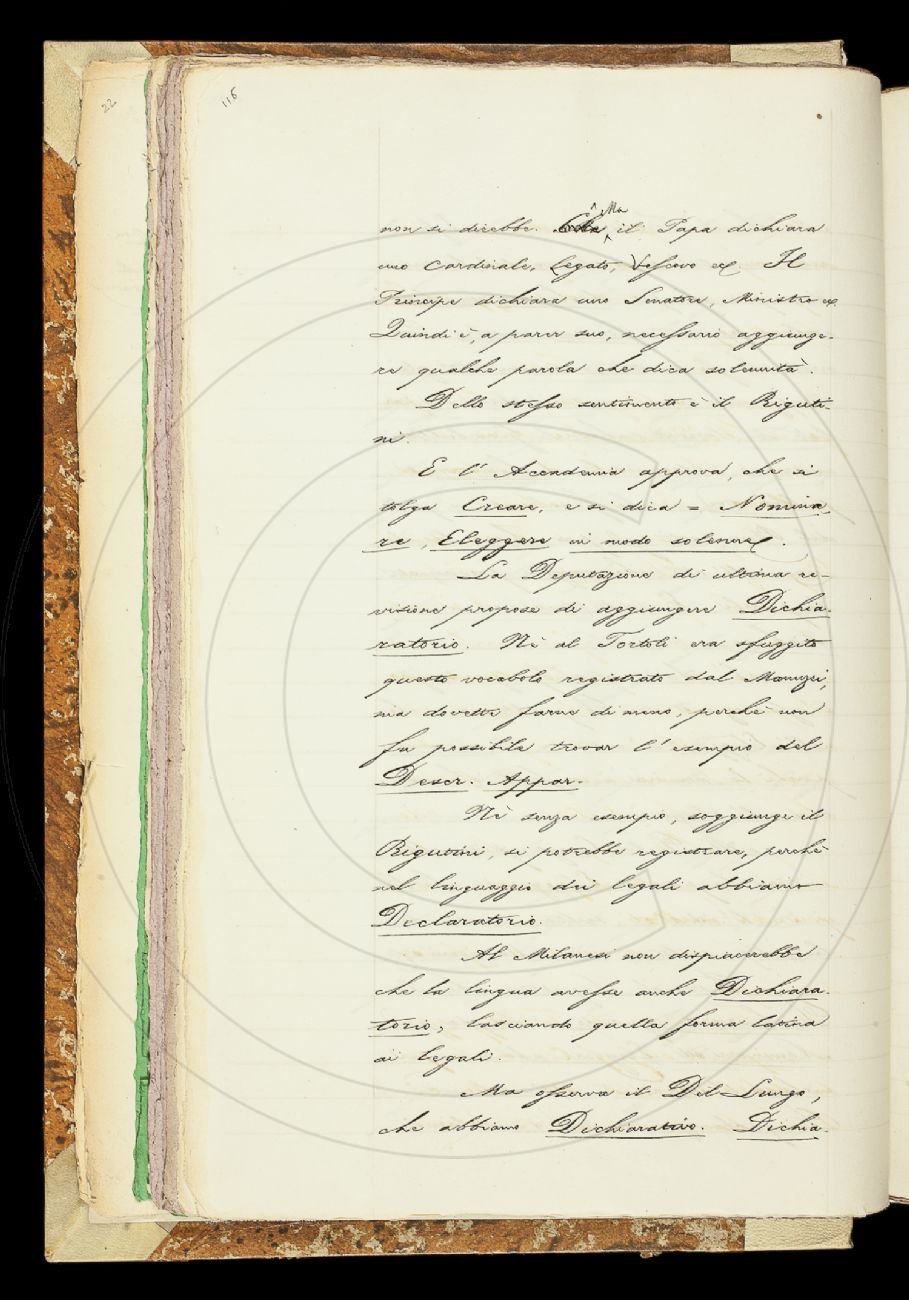 22
116
Ma
non si direbbe. il Papa dichiara
uno Cardinale, Legato, Vescovo ec. Il
Principe dichiara uno Senatore, Ministro ec.
Quindi è, a parer suo, necessario aggiunge-
re qualche parola che dica solennità.
Dello stesso sentimento è il Riguti-
ni.
E l'Accademia approva, che si
tolga Creare, e si dica = Nomina-
re, Eleggere in modo solenne.
La Deputazione di ultima re-
visione propose di aggiungere Dichia-
ratorio. Nè al Tortoli era sfuggito
questo vocabolo registrato dal Manuzzi,
ma dovette farne di meno, perchè non
fu possibile trovar l'esempio del
Descr. Appar.
Nè senza esempio, soggiunge il
Rigutini, si potrebbe registrare, perchè
nel linguaggio dei legali abbiamo
Declaratorio.
Al Milanesi non dispiacerebbe
che la lingua avesse anche Dichiara-
torio, lasciando quella forma latina
ai legali.
Ma osserva il Del-Lungo,
che abbiamo Dichiarativo. Dichia-